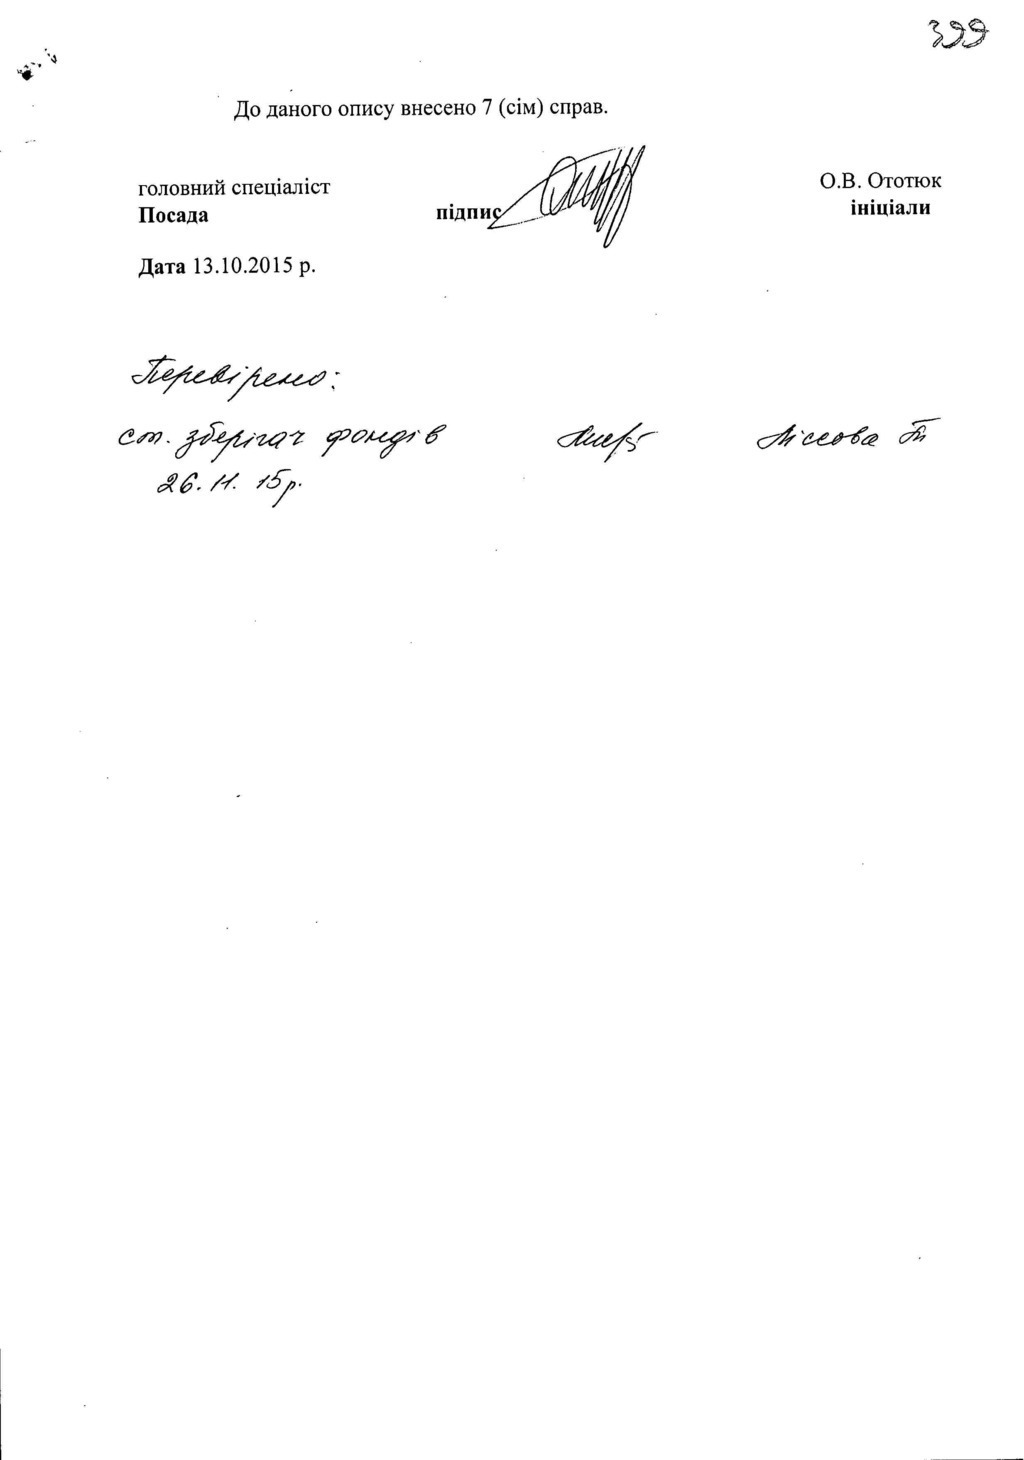 399
До даного опису внесено 7 (сім) справ.
головний спеціаліст О.В. Ототюк
Посада підпис ініціали
Дата 13.10.2015 р.
Перевірено:
ст. зберігач фондів Лісова Т
26. 11. 15р.